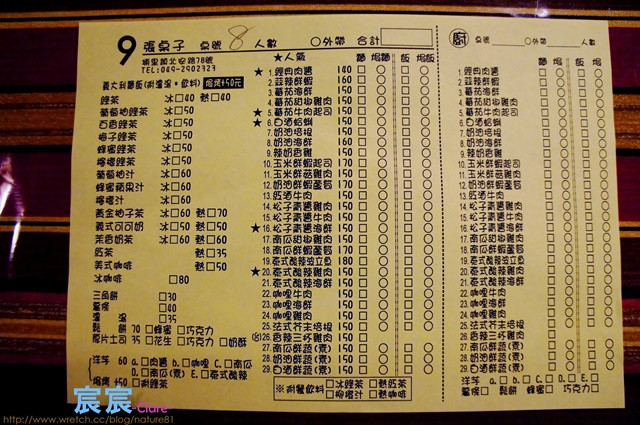 9 張桌子 桌號 8 人數 ○外帶 合計
埔里鎮北安路78號
TEL:049-2902323
義大利麵飯(附濃湯+飲料) 焗烤+50元
綠茶 冰□40 熱□40
葡萄柚綠茶 冰□50
百香綠茶 冰□50
梅子綠茶 冰□50
蜂蜜綠茶 冰□50
檸檬綠茶 冰□50
葡萄柚汁 冰□60
蜂蜜蘋果汁 冰□60
檸檬汁 冰□60
黃金柚子茶 冰□60 熱□70
義式可可奶 冰□50 熱□50
茉香奶茶 冰□60 熱□60
奶茶 熱□35
美式咖啡 熱□50
冰咖啡 □80
三角餅 □30
薯條 □40
濃湯 □35
鬆餅 70 □蜂蜜 □巧克力
厚片土司 35 □花生 □巧克力 □奶酥
洋芋 60 a.□肉醬 b.□咖哩 C.□南瓜
D.□南瓜(素) E.□泰式酸辣
焗烤 +50 □附綠茶
★人氣 麵 焗麵 飯 焗飯
★ 1.經典肉醬 140 □○□○
2.蒜辣鮮蝦 160 □○□○
3.蕃茄海鮮 150 □○□○
4.蕃茄甜椒雞肉 150 □○□○
★ 5.蕃茄牛肉起司 150 □○□○
★ 6.白酒蛤蜊 150 □○□○
7.奶油培根 150 □○□○
8.奶油海鮮 160 □○□○
9.辣奶香雞 150 □○□○
10.玉米鮮蝦起司 170 □○□○
11.玉米鮮菇雞肉 150 □○□○
12.奶油鮮蝦蘆筍 170 □○□○
13.奶酒牛肉 150 □○□○
14.松子青醬雞肉 150 □○□○
15.松子青醬牛肉 150 □○□○
★16.松子青醬海鮮 150 □○□○
17.南瓜甜椒雞肉 150 □○□○
18.南瓜鮮蝦蘆筍 170 □○□○
19.泰式酸辣旗魚 180 □○□○
★20.泰式酸辣雞肉 150 □○□○
21.泰式酸辣海鮮 150 □○□○
22.咖哩牛肉 150 □○□○
23.咖哩海鮮 150 □○□○
24.咖哩雞肉 150 □○□○
25.法式芥末培根 150 □○□○
26.香辣三杯雞肉 150
27.南瓜鮮蔬(素) 150 □○□○
28.奶油鮮蔬(素) 150 □○□○
29.白酒鮮蔬(素) 150 □○□○
※附餐飲料 □冰綠茶 □熱奶茶
□檸檬汁 □熱綠茶
廚 桌號 ○外帶 人數
麵 焗麵 飯 焗飯
1.經典肉醬 □○□○
2.蒜辣鮮蝦 □○□○
3.蕃茄海鮮 □○□○
4.蕃茄甜椒雞肉 □○□○
5.蕃茄牛肉起司 □○□○
6.白酒蛤蜊 □○□○
7.奶油培根 □○□○
8.奶油海鮮 □○□○
9.辣奶香雞 □○□○
10.玉米鮮蝦起司 □○□○
11.玉米鮮菇雞肉 □○□○
12.奶油鮮蝦蘆筍 □○□○
13.奶酒牛肉 □○□○
14.松子青醬雞肉 □○□○
15.松子青醬牛肉 □○□○
16.松子青醬海鮮 □○□○
17.南瓜甜椒雞肉 □○□○
18.南瓜鮮蝦蘆筍 □○□○
19.泰式酸辣旗魚 □○□○
20.泰式酸辣雞肉 □○□○
21.泰式酸辣海鮮 □○□○
22.咖哩牛肉 □○□○
23.咖哩海鮮 □○□○
24.咖哩雞肉 □○□○
25.法式芥末培根 □○□○
26.香辣三杯雞肉
27.南瓜鮮蔬(素) □○□○
28.奶油鮮蔬(素) □○□○
29.白酒鮮蔬(素) □○□○
洋芋 a.□ b.□ C.□ D.□ E.□
薯條□ 鬆餅 蜂蜜□ 巧克力□
宸宸-Clare
http://www.wretch.cc/blog/nature81